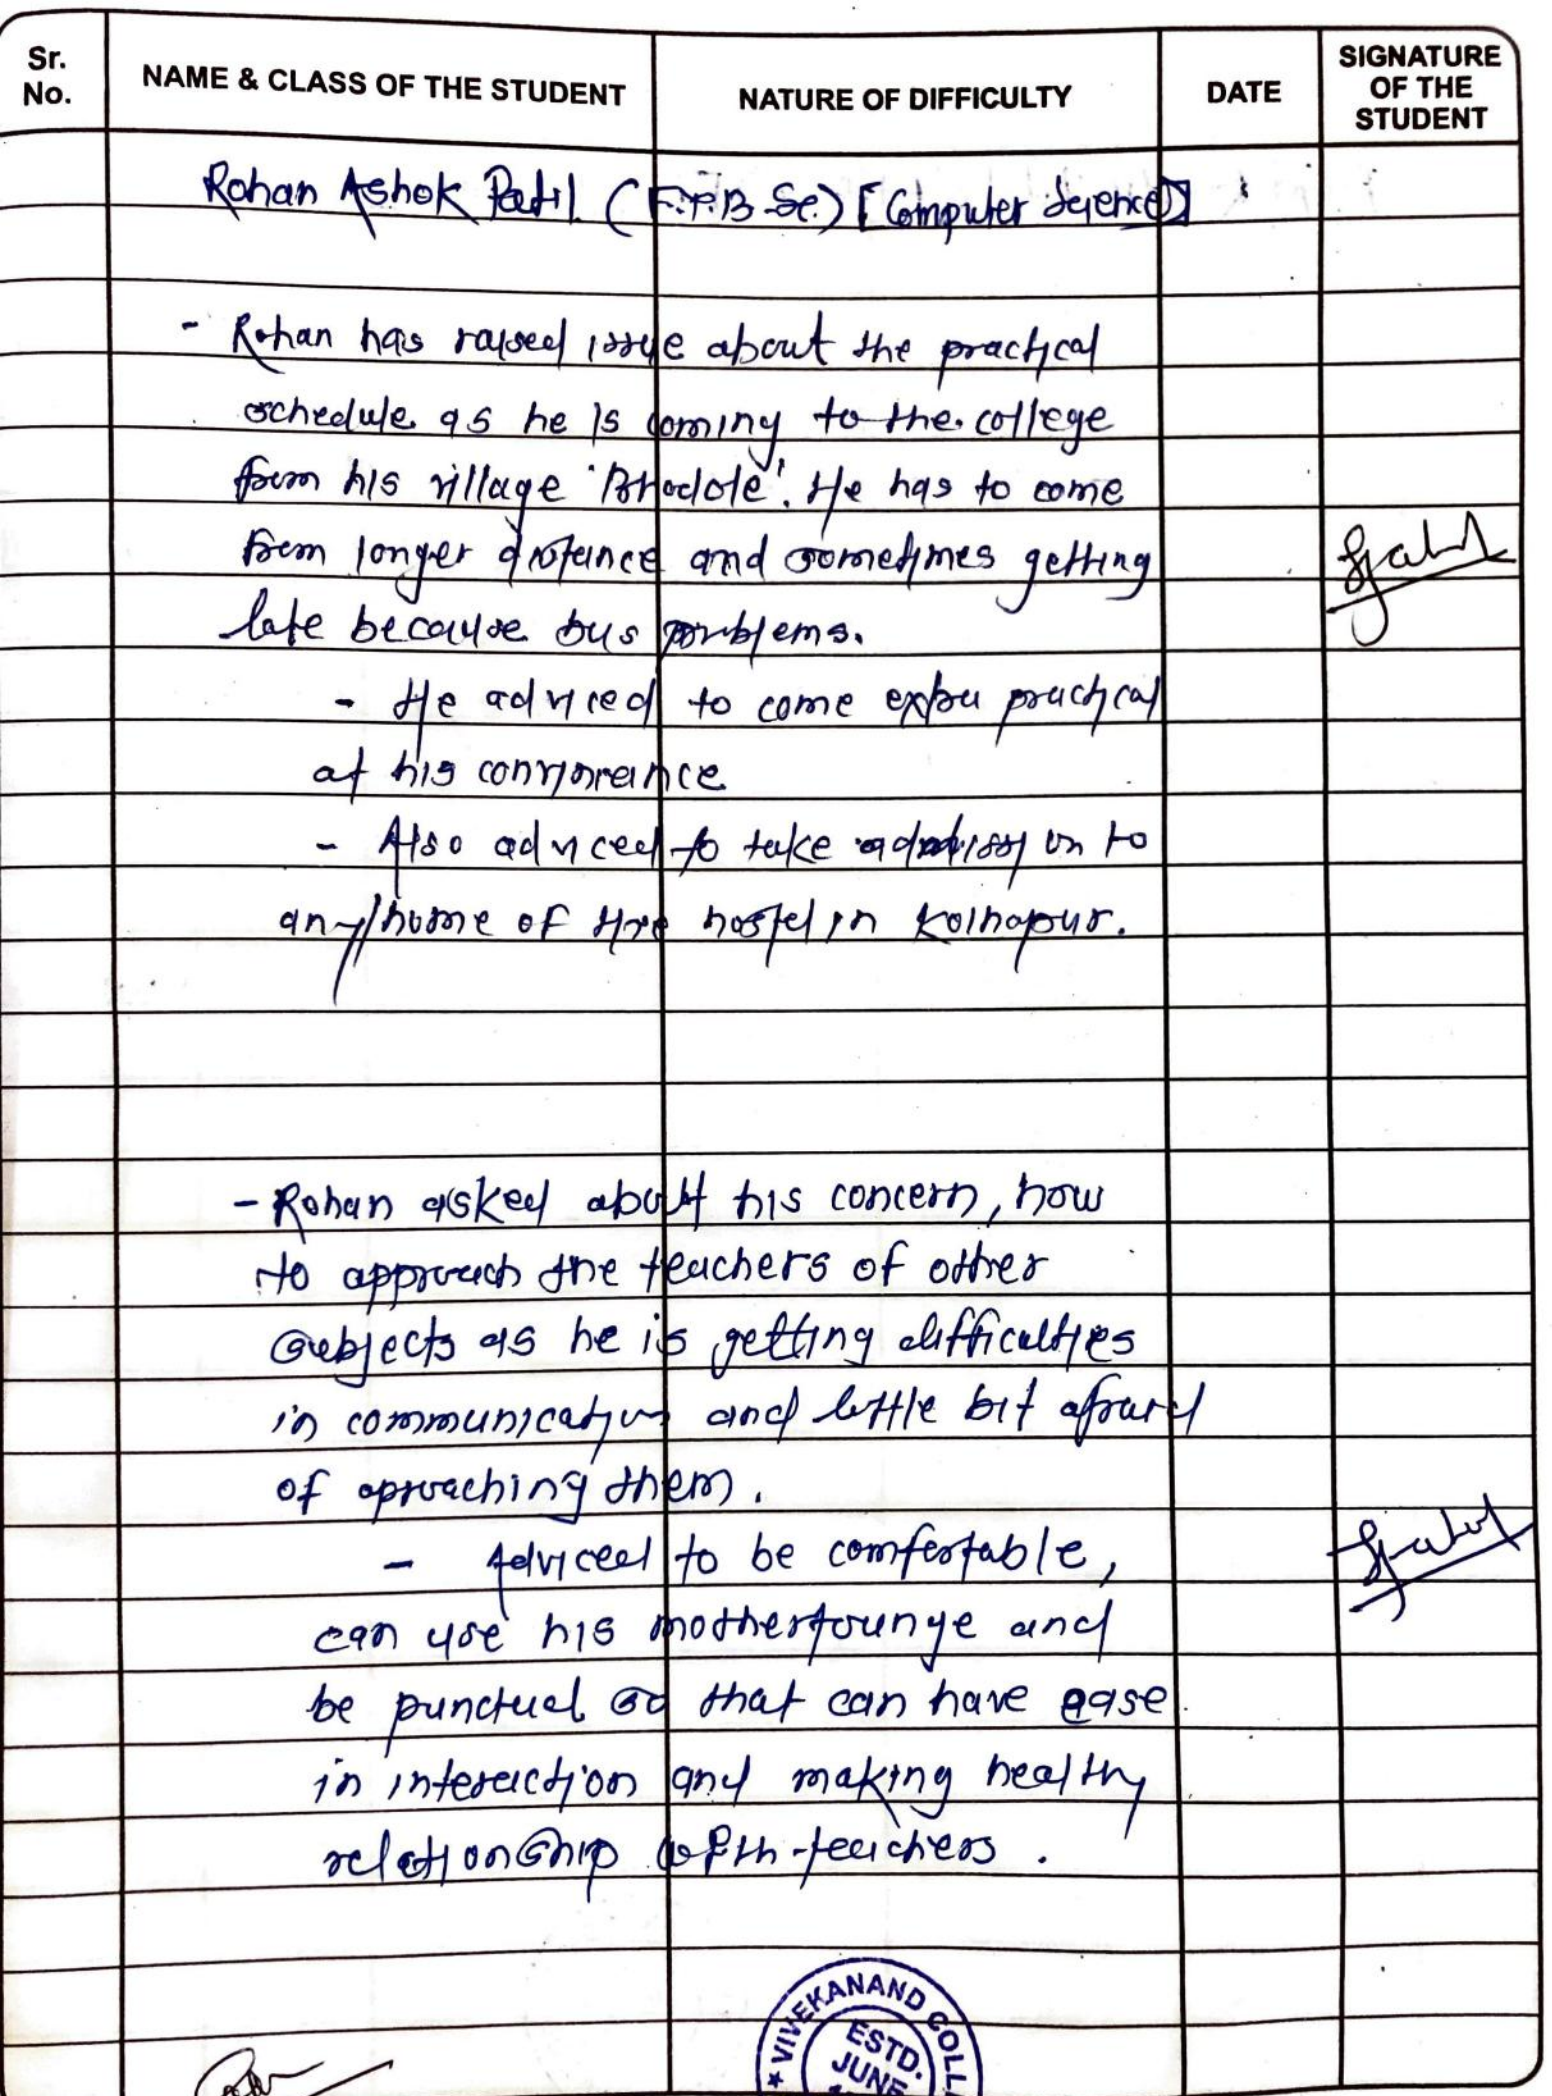 Sr.
No.
NAME & CLASS OF THE STUDENT
NATURE OF DIFFICULTY
DATE
SIGNATURE
OF THE
STUDENT
Rohan Ashok Patil (F.Y.B.Sc.) [Computer Science]
- Rohan has raised issue about the practical
schedule as he is coming to the college
from his village 'Bhadole'. He has to come
from longer distance and sometimes getting
late because bus problems.
- He adviced to come extra practical
at his
- Also adviced to take admission to
any home of the hostel in Kolhapur.
- Rohan asked about his concern, how
to approach the teachers of other
subjects as he is getting difficulties
in communication and little bit afraid
of aproaching them.
- Adviced to be comfortable,
can use his mothertounge and
be punctual so that can have ease
in interaction and making healthy
relationship with teachers.
VIVEKANAND COLL
ESTD.
JUNE